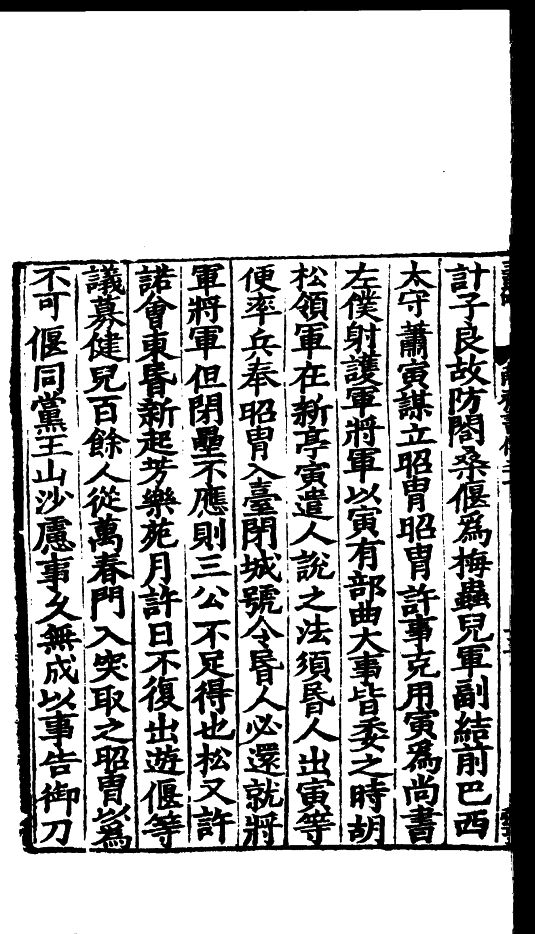 計子良故防閤桑偃爲梅蟲兒軍副結前巴西
太守蕭寅謀立昭胄昭胄許事克用寅爲尚書
左僕射護軍將軍以寅有部曲大事皆委之時胡
松領軍在新亭寅遣人說之法須昬人出寅等
便率兵奉昭胄入臺閉城號令昬人必還就將
軍將軍但閉壘不應則三公不足得也松又許
諾會東昬新起芳樂苑月許日不復出遊偃等
議募健兒百餘人從萬春門入突取之昭胄以爲
不可偃同黨王山沙慮事久無成以事告御刀